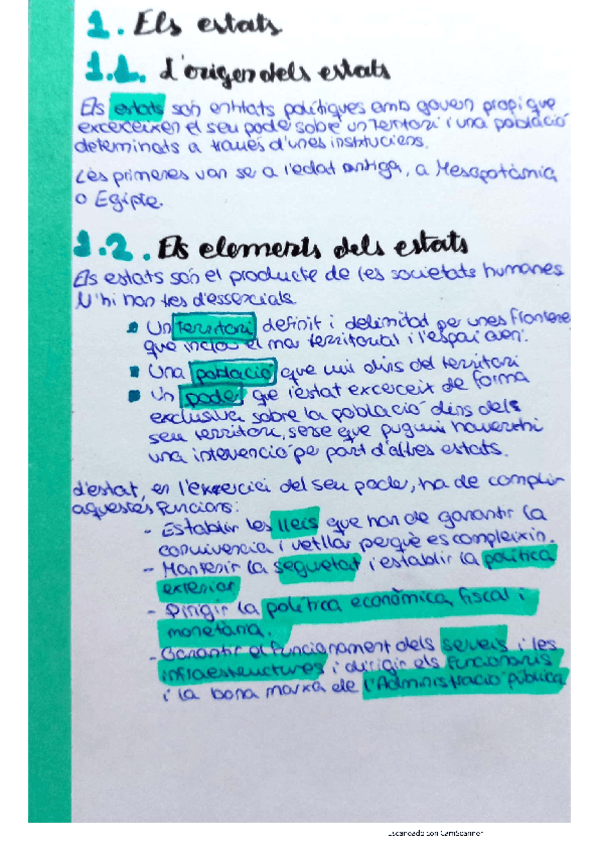 1. Els estats
1.1. L'origen dels estats
Els estats són entitats polítiques amb govern propi que
exerceixen el seu poder sobre un territori i una població
determinats a través d'unes institucions.
Les primeres van se a l'edat antiga, a Mesopotàmia
o Egipte.
1.2. Els elements dels estats
Els estats són el producte de les societats humanes
N'hi han tres d'essencials
Un territori definit i delimitad per unes fronteres
que inclou el mar territorial i l'espai aeri.
Una població que viu dins del territori
Un poder que l'estat exerceix de forma
exclusiva sobre la població dins dels
seu territori, sense que pugui haver-hi
una intervenció per part d'altres estats.
d'estat, en l'exercici del seu poder, ha de complir
aquestes funcions:
- Establir les lleis que han de garantir la
convivencia i vetllar perquè es compleixin.
- Mantenir la seguretat i establir la política
exterior
- Dirigir la política econòmica, fiscal i
monetària.
- Garantir el funcionament dels serveis i les
infraestructures i dirigir els funcionaris
i la bona marxa de l'Administració pública
Escaneado con CamScanner